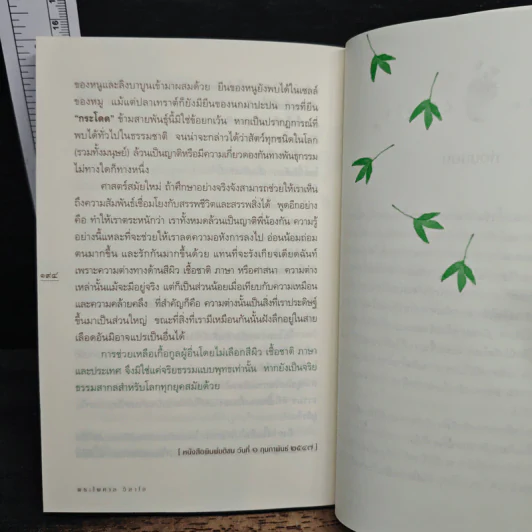 ของหนูและลิงบาบูนเข้ามาผสมด้วย ยีนของหนูยังพบได้ในเซลล์
ของหมู แม้แต่ปลาเทราต์ก็ยังมียีนของนกมาปะปน การที่ยีน
"กระโดด" ข้ามสายพันธุ์นี้มิใช่ข้อยกเว้น หากเป็นปรากฏการณ์ที่
พบได้ทั่วไปในธรรมชาติ จนน่าจะกล่าวได้ว่าสัตว์ทุกชนิดในโลก
(รวมทั้งมนุษย์) ล้วนเป็นญาติหรือมีความเกี่ยวดองกันทางพันธุกรรม
ไม่ทางใดก็ทางหนึ่ง
ศาสตร์สมัยใหม่ ถ้าศึกษาอย่างจริงจังสามารถช่วยให้เราเห็น
ถึงความสัมพันธ์เชื่อมโยงกับสรรพชีวิตและสรรพสิ่งได้ พูดอีกอย่าง
คือ ทำให้เราตระหนักว่า เราทั้งหมดล้วนเป็นญาติพี่น้องกัน ความรู้
อย่างนี้แหละที่จะช่วยให้เราลดความอหังการลงไป อ่อนน้อมถ่อม
ตนมากขึ้น และรักกันมากขึ้นด้วย แทนที่จะรังเกียจเดียดฉันท์
เพราะความต่างทางด้านสีผิว เชื้อชาติ ภาษา หรือศาสนา ความต่าง
เหล่านั้นแม้จะมีอยู่จริง แต่ก็เป็นส่วนน้อยเมื่อเทียบกับความเหมือน
และความคล้ายคลึง ที่สำคัญก็คือ ความต่างนั้นเป็นสิ่งที่เราประดิษฐ์
ขึ้นมาเป็นส่วนใหญ่ ขณะที่สิ่งที่เรามีเหมือนกันนั้นฝังลึกอยู่ในสาย
เลือดอันมิอาจแปรเป็นอื่นได้
การช่วยเหลือเกื้อกูลผู้อื่นโดยไม่เลือกสีผิว เชื้อชาติ ภาษา
และประเทศ จึงมิใช่แค่จริยธรรมแบบพุทธเท่านั้น หากยังเป็นจริย
ธรรมสากลสำหรับโลกทุกยุคสมัยด้วย
[ หนังสือพิมพ์มติชน วันที่ ๖ กุมภาพันธ์ ๒๕๔๗ ]
๑๙๔
พระไพศาล วิสาโล